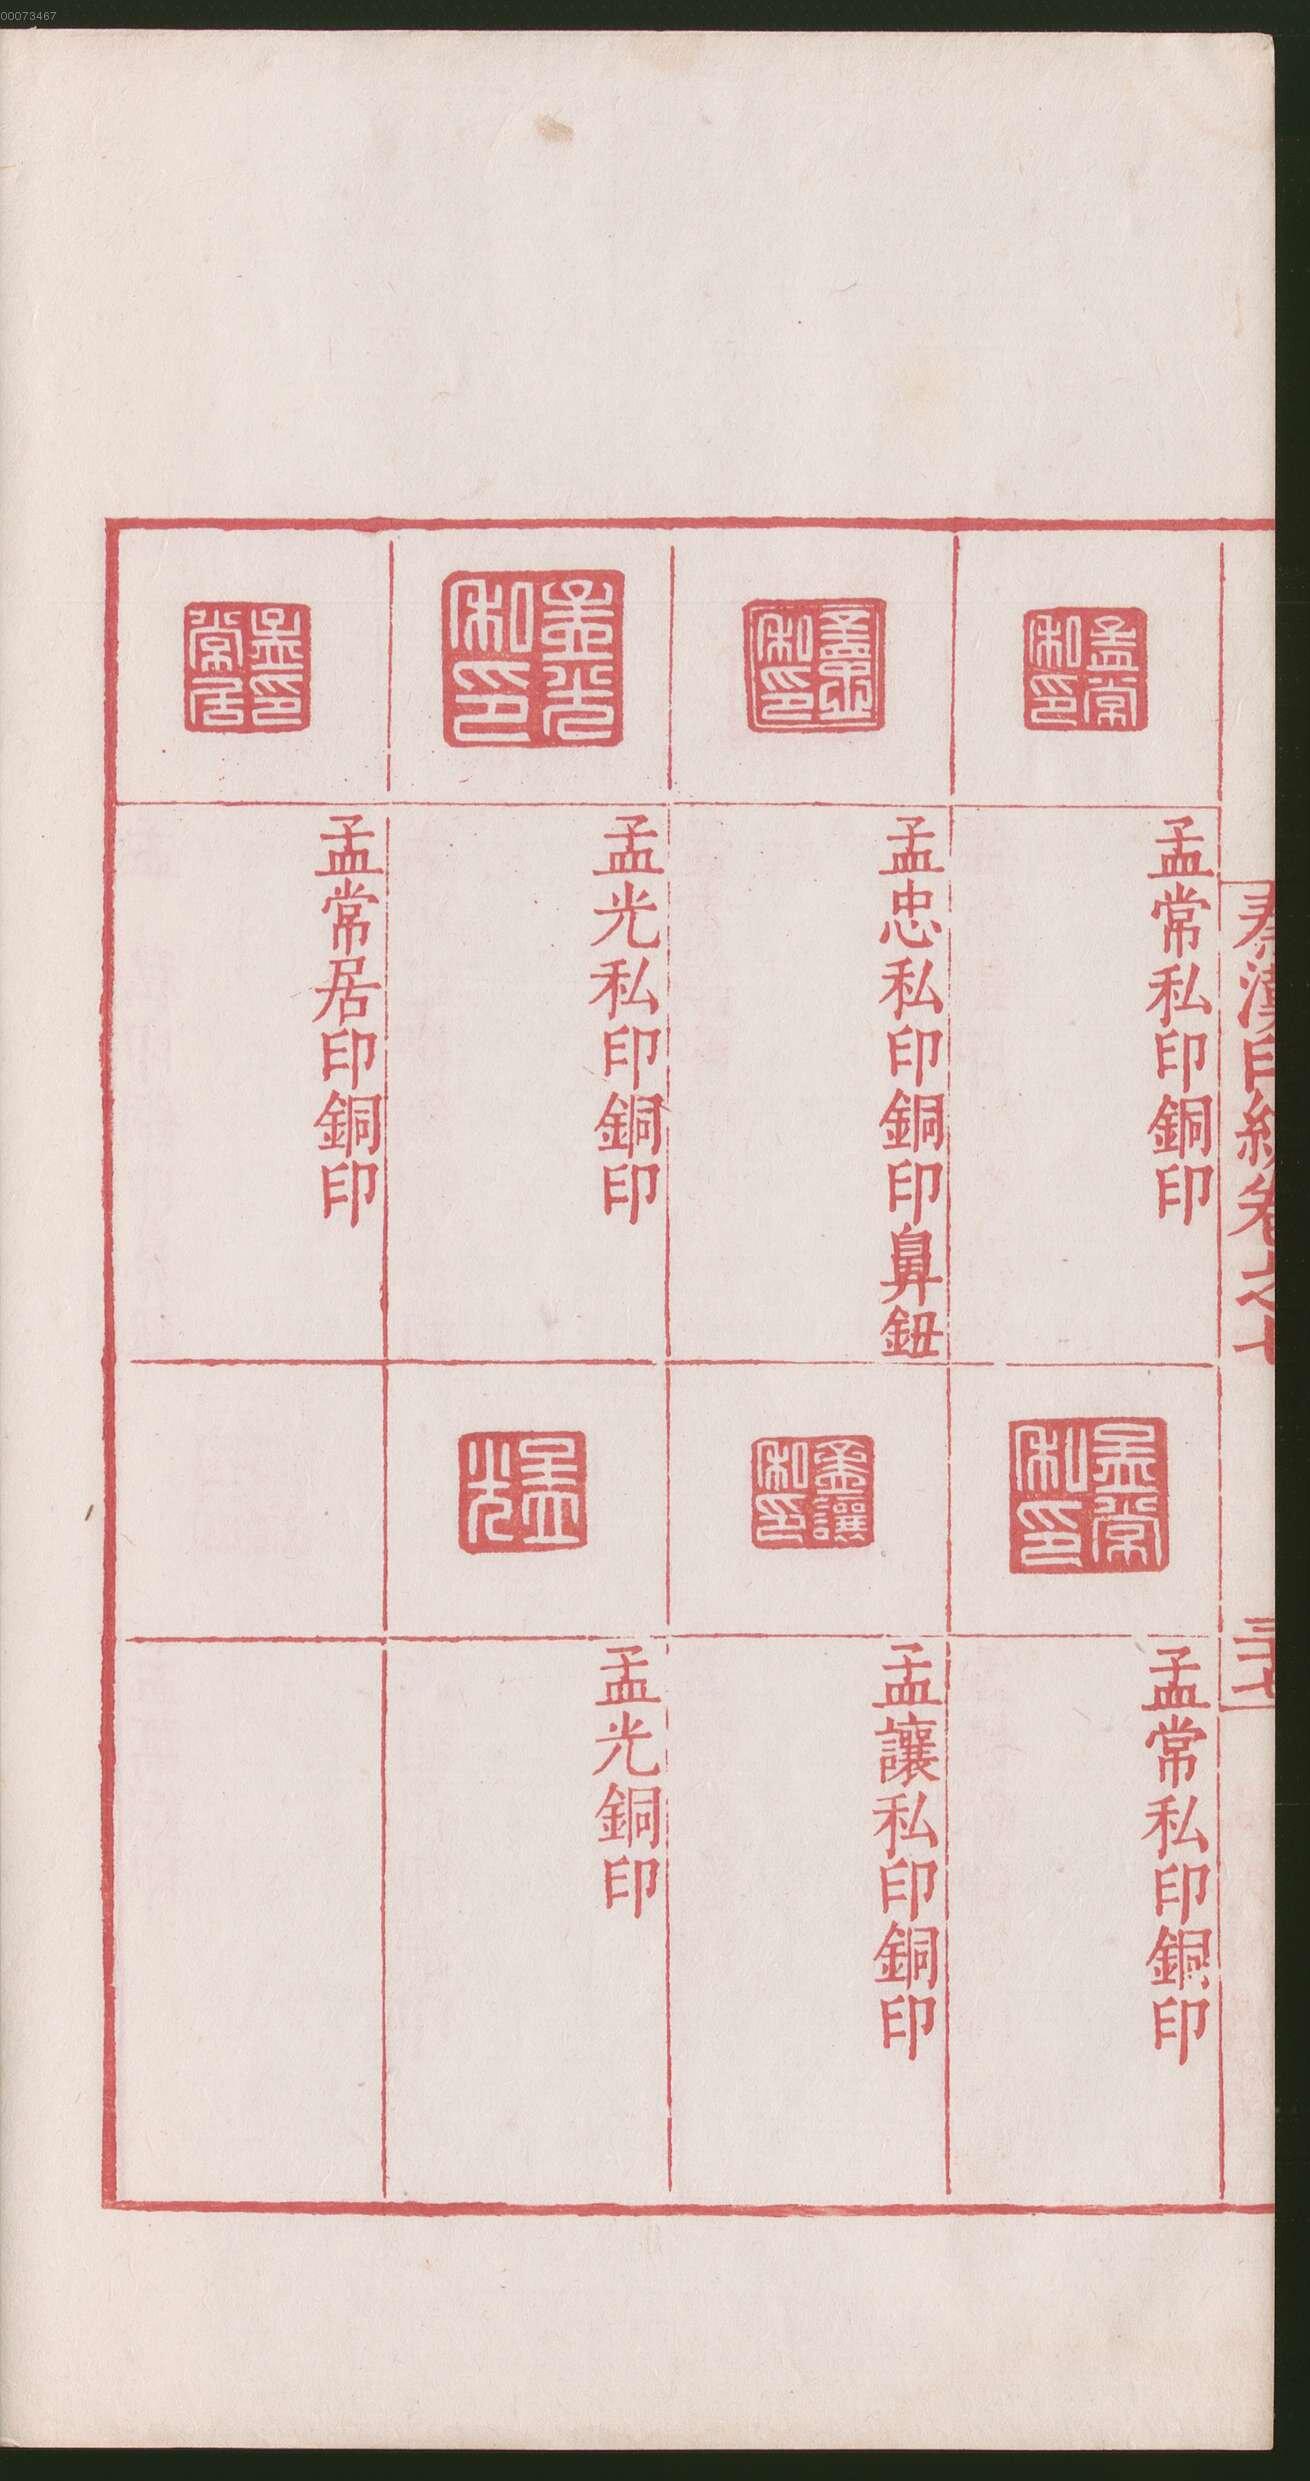 00073467
秦漢印統卷之七
三十七
孟常私印
孟常私印銅印
孟常私印
孟常私印銅印
孟忠私印
孟忠私印銅印鼻鈕
孟讓私印
孟讓私印銅印
孟光私印
孟光私印銅印
孟光
孟光銅印
孟常居印
孟常居印銅印